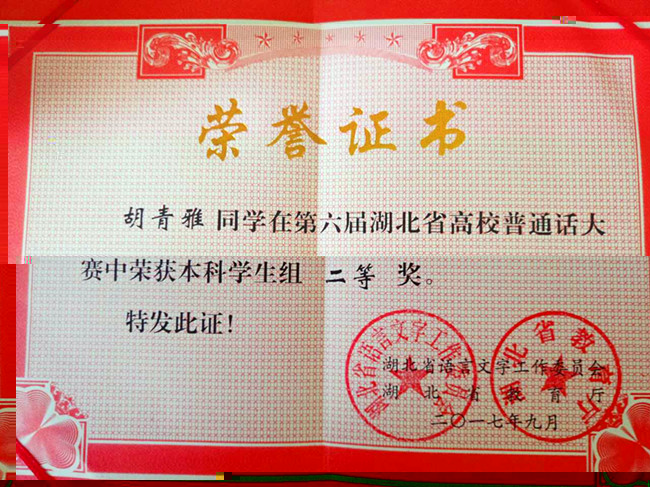 荣誉证书
胡青雅 同学在第六届湖北省高校普通话大
赛中荣获本科学生组 二等 奖。
特发此证！
湖北省语言文字工作委员会
湖北省教育厅
湖北省语言文字工作委员会
湖北省教育厅
二〇一七年九月